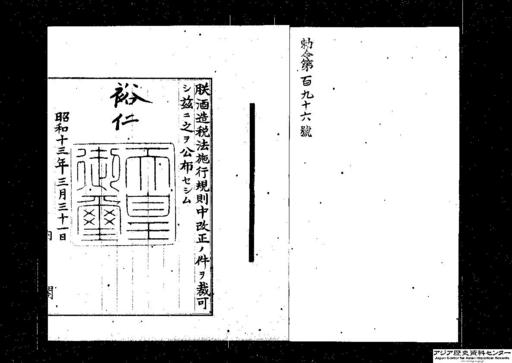 勅令第百九十六號
朕酒造税法施行規則中改正ノ件ヲ裁可
シ玆ニ之ヲ公布セシム
裕仁
天皇御璽
昭和十三年三月三十一日
内閣
アジア歴史資料センター
Japan Center for Asian Historical Records